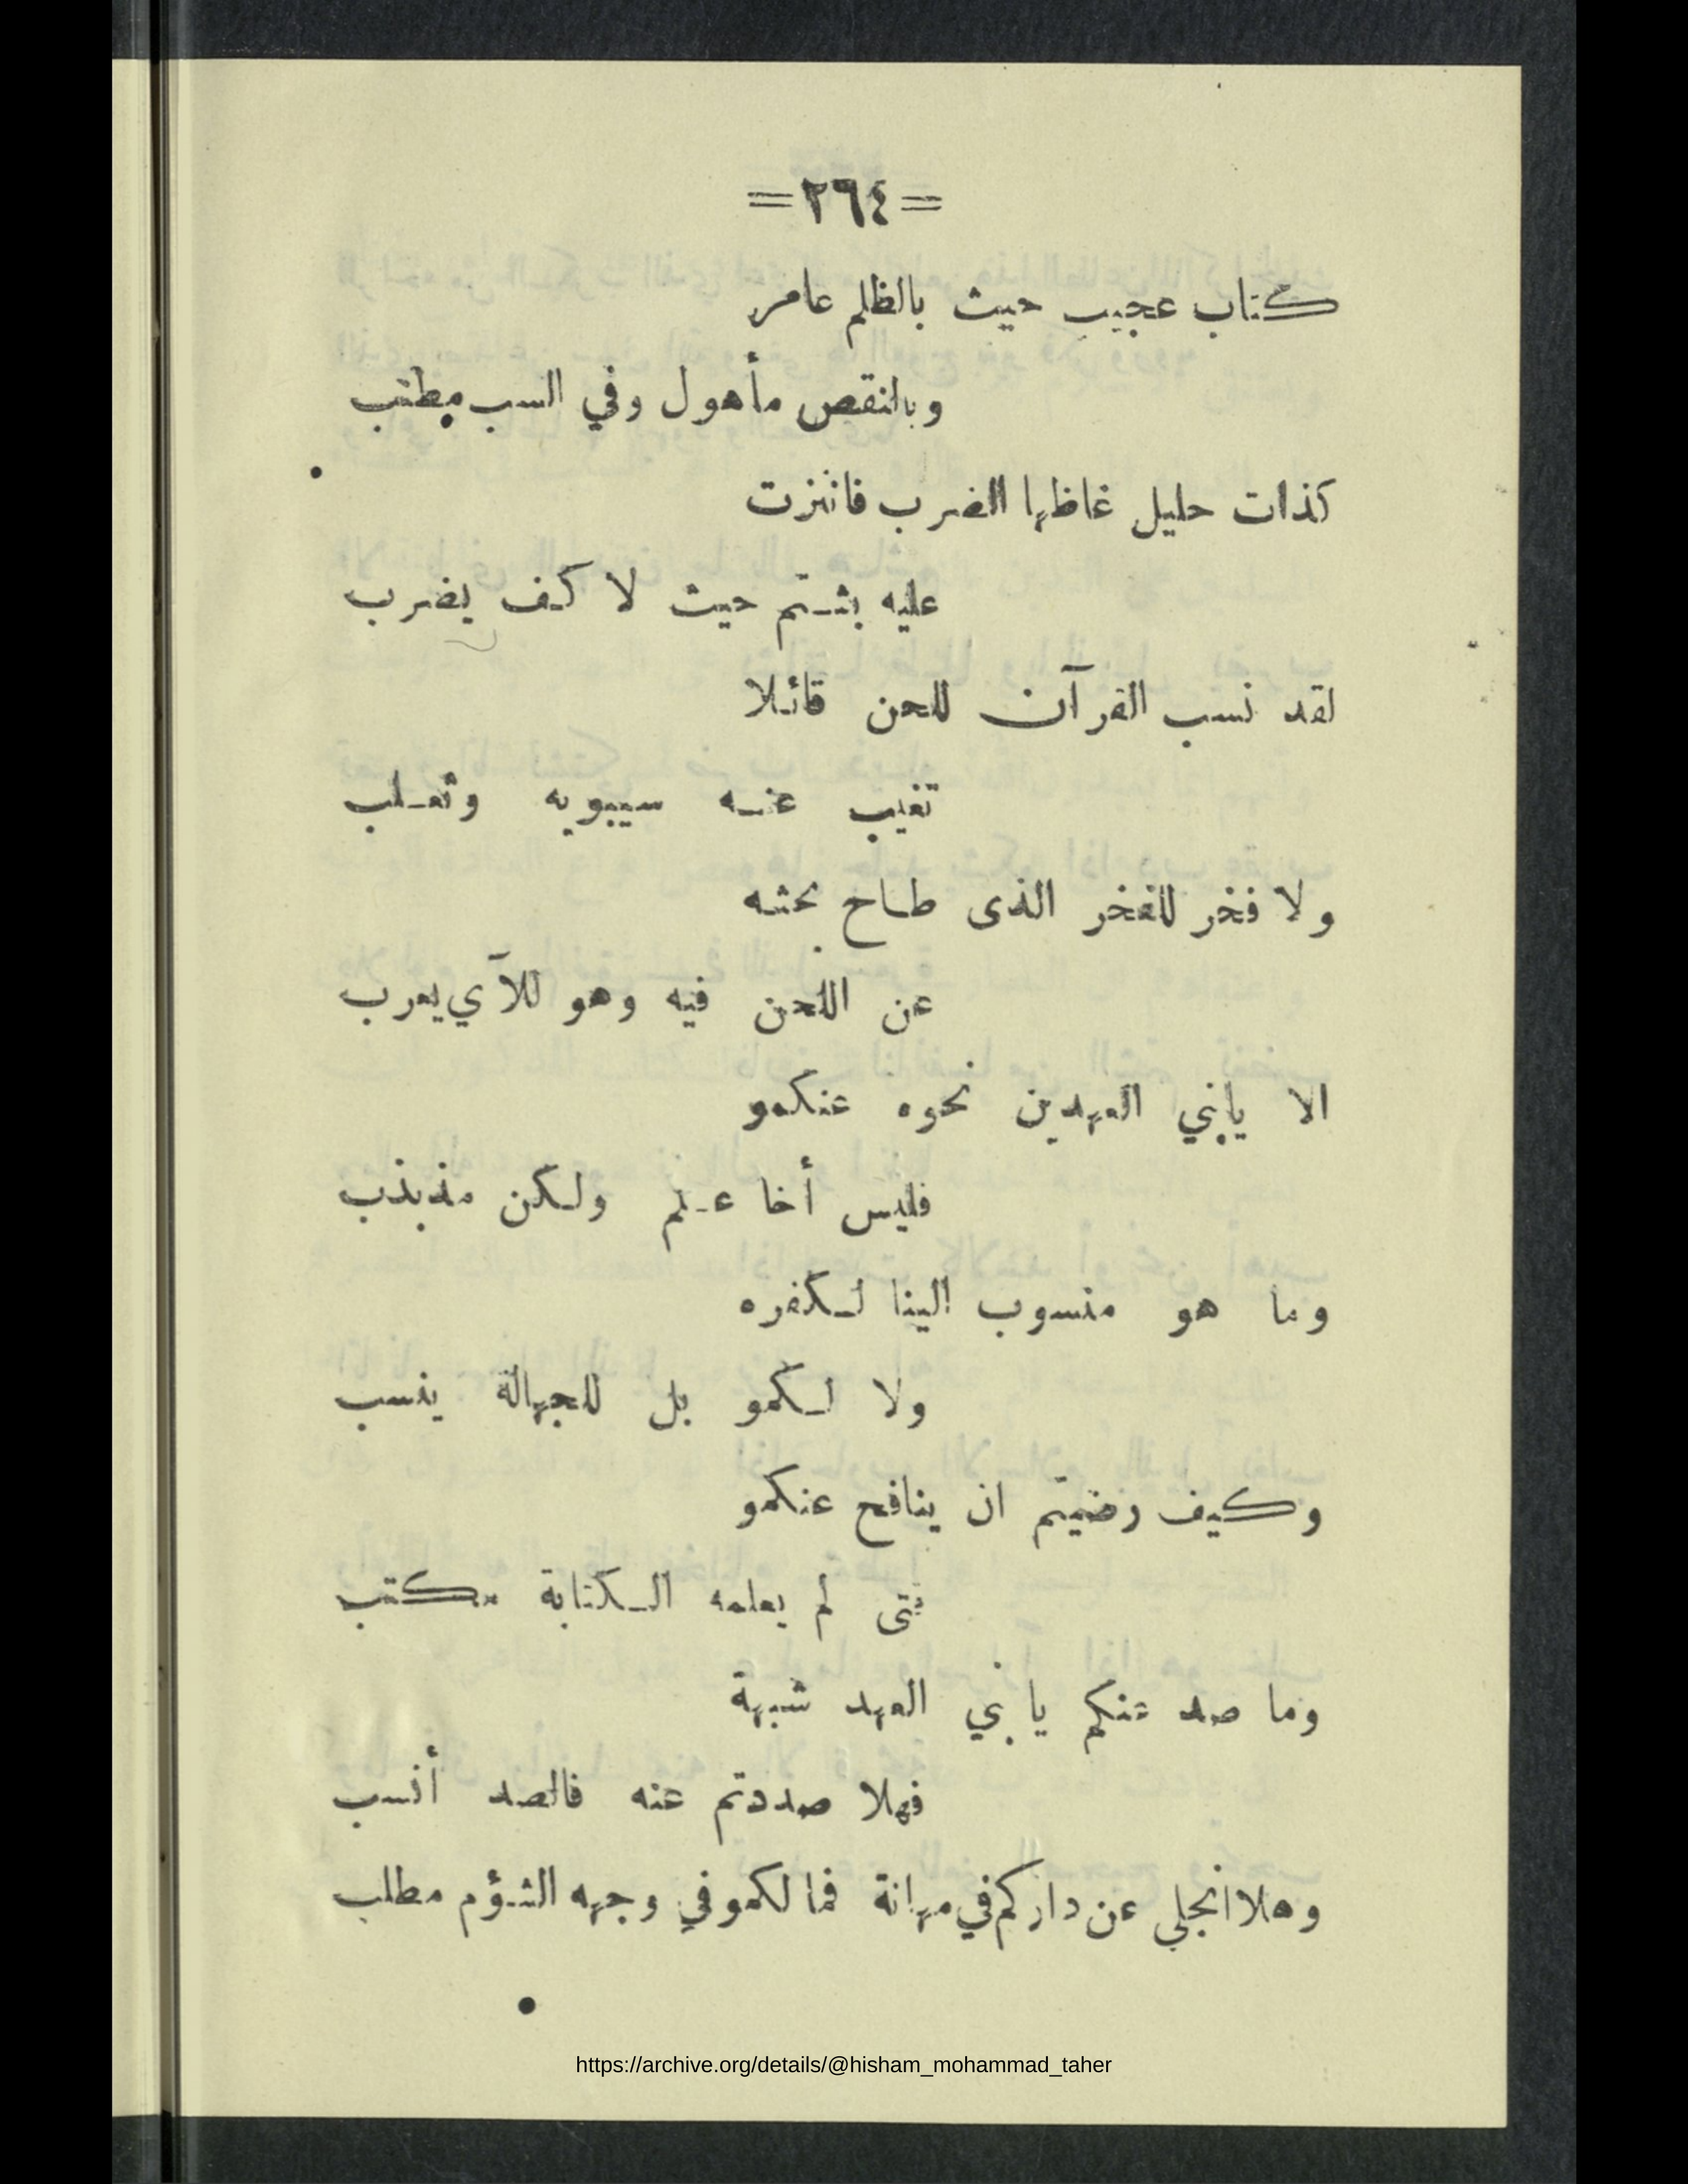 =٢٦٤=
كتاب عجيب حيث بالظلم عامر
وبالنقص مأهول وفي السب مطنب
كذات حليل غاظها الضرب فانبرت
عليه بشتم حيث لا كف يضرب
لقد نسب القرآن للحن قائلا
تغيب عنه سيبويه وثعلب
ولا فخر للفخر الذى طاح بحثه
عن اللحن فيه وهو للآي يعرب
الا يابني العهدين نحوه عنكمو
فليس أخا علم ولكن مذبذب
وما هو منسوب الينا لكفره
ولا لكمو بل للجهالة ينسب
وكيف رضيتم ان ينافح عنكمو
فتى لم يعلمه الكتابة مكتب
وما صد عنكم يا بني العهد شبهة
فهلا صددتم عنه فالصد أنسب
وهلا انجلى عن داركم في مهانة فما لكمو في وجهه الشؤم مطلب
https://archive.org/details/@hisham_mohammad_taher